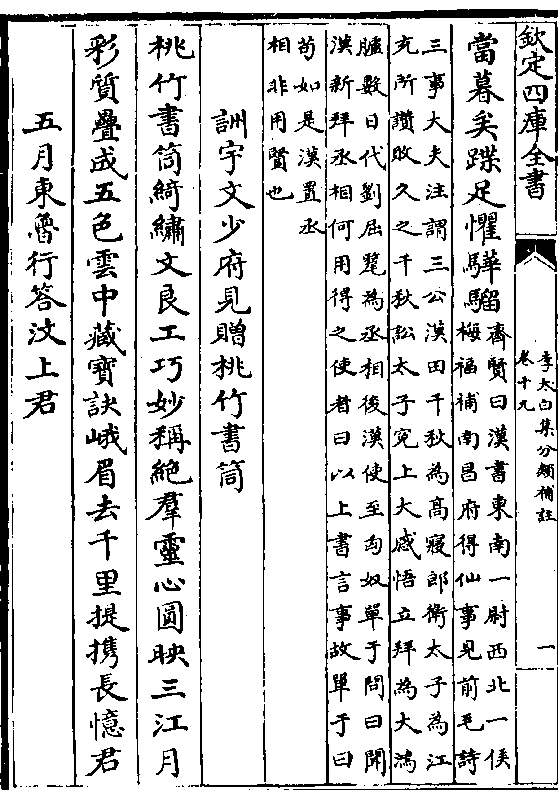 欽定四庫全書
李太白集分類補註
卷十九
一
當暮矣蹀足懼驊騮
齊賢曰漢書東南一尉西北一候
梅福補南昌府得仙事見前毛詩
三事大夫注謂三公漢田千秋為高寢郎衛太子為江
充所讚敗久之千秋訟太子寃上大感悟立拜為大鴻
臚數日代劉屈氂為丞相後漢使至匈奴單于問曰聞
漢新拜丞相何用得之使者曰以上書言事故單于曰
苟如是漢置丞
相非用賢也
詶宇文少府見贈桃竹書筒
桃竹書筒綺繡文良工巧妙稱絶羣靈心圓映三江月
彩質疊成五色雲中藏寶訣峨眉去千里提擕長憶君
五月東魯行答汶上君